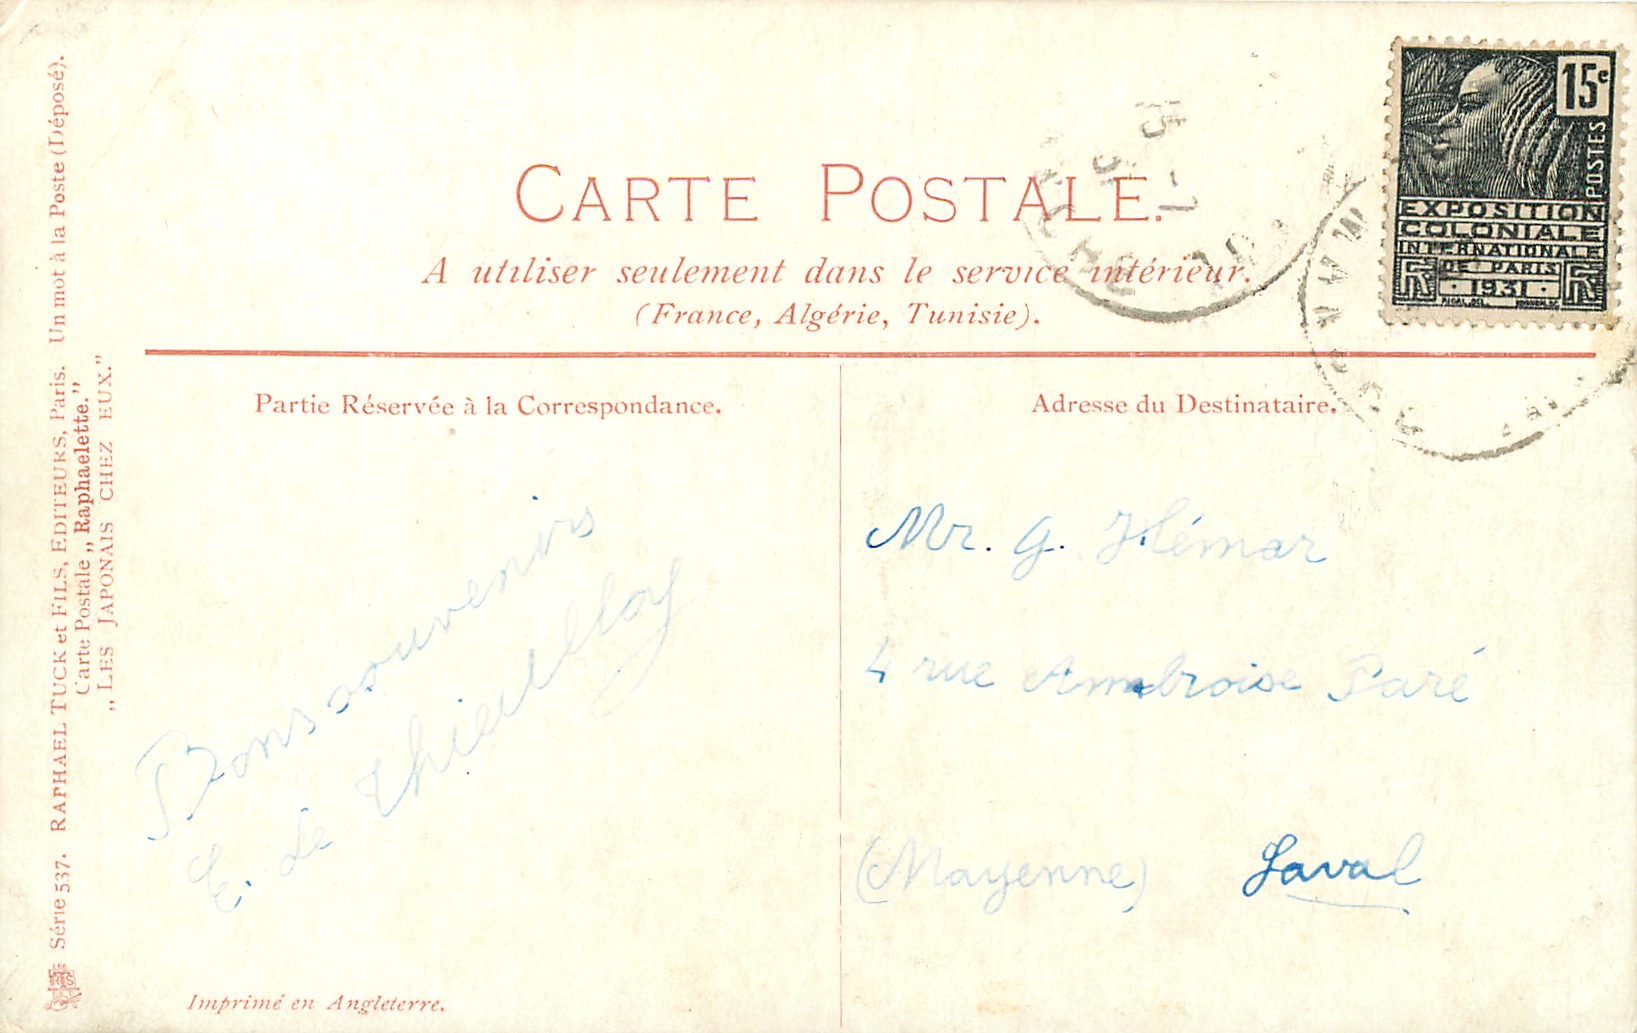 CARTE POSTALE.
A utiliser seulement dans le service intérieur.
(France, Algérie, Tunisie).
15c
POSTES
EXPOSITION
COLONIALE
INTERNATIONALE
DE PARIS
RF · 1931 · RF
Partie Réservée à la Correspondance.
Bons souvenirs
E. Le
Adresse du Destinataire.
Mr. G. Hémar
4 rue Ambroise Paré
(Mayenne) Laval
Série 537. RAPHAEL TUCK et FILS, EDITEURS, Paris. Un mot à la Poste (Déposé).
Carte Postale „Raphaelette.”
„LES JAPONAIS CHEZ EUX.”
Imprimé en Angleterre.